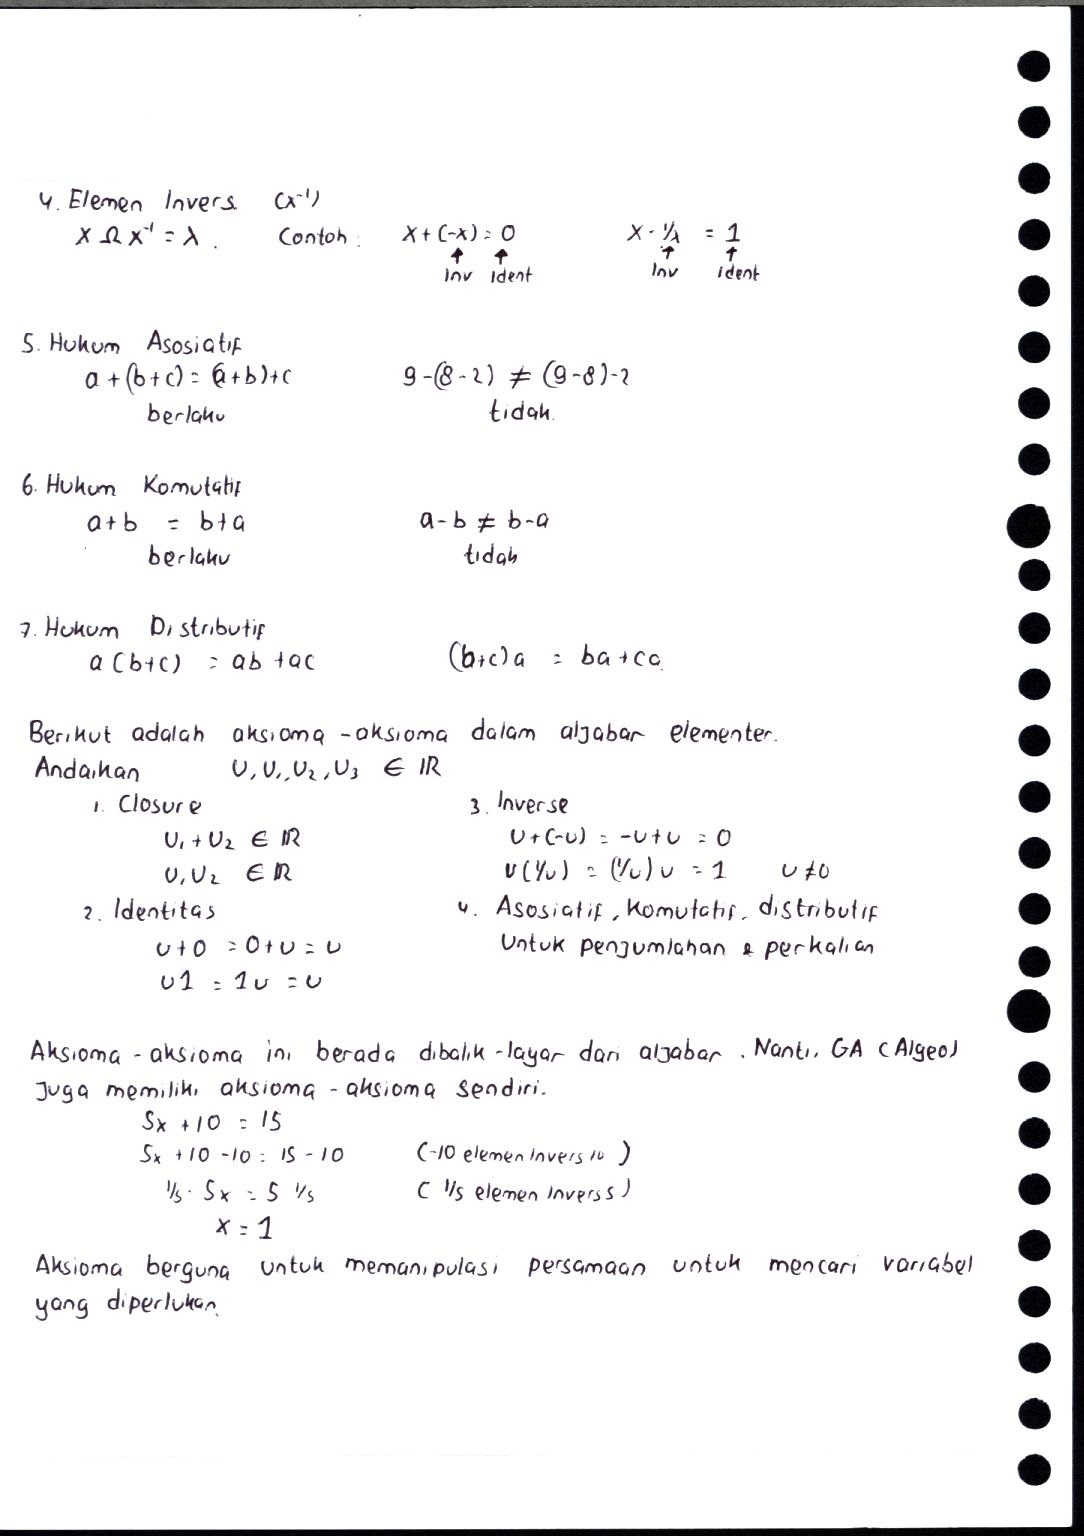 4. Elemen Invers (x⁻¹)
x Ω x⁻¹ = λ. Contoh: x + (-x) = 0 x · 1/x = 1
↑ ↑ ↑ ↑
Inv ident Inv ident
5. Hukum Asosiatif
a + (b+c) = (a+b)+c 9-(8-2) ≠ (9-8)-2
berlaku tidak.
6. Hukum Komutatif
a+b = b+a a-b ≠ b-a
berlaku tidak
7. Hukum Distributif
a (b+c) = ab + ac (b+c)a = ba + ca
Berikut adalah aksioma-aksioma dalam aljabar elementer.
Andaikan U, U₁, U₂, U₃ ∈ ℝ
1. Closure
U₁ + U₂ ∈ ℝ
U₁U₂ ∈ ℝ
2. Identitas
U+0 = 0+U = U
U1 = 1U = U
3. Inverse
U+(-U) = -U+U = 0
U(1/U) = (1/U)U = 1 U≠0
4. Asosiatif, Komutatif, distributif
Untuk penjumlahan & perkalian
Aksioma-aksioma ini berada dibalik-layar dari aljabar. Nanti, GA (Algeo)
Juga memiliki aksioma-aksioma sendiri.
5x + 10 = 15
5x + 10 - 10 = 15 - 10 (-10 elemen invers 10)
1/5 · 5x = 5 1/5 (1/5 elemen invers 5)
x = 1
Aksioma berguna untuk memanipulasi persamaan untuk mencari variabel
yang diperlukan.